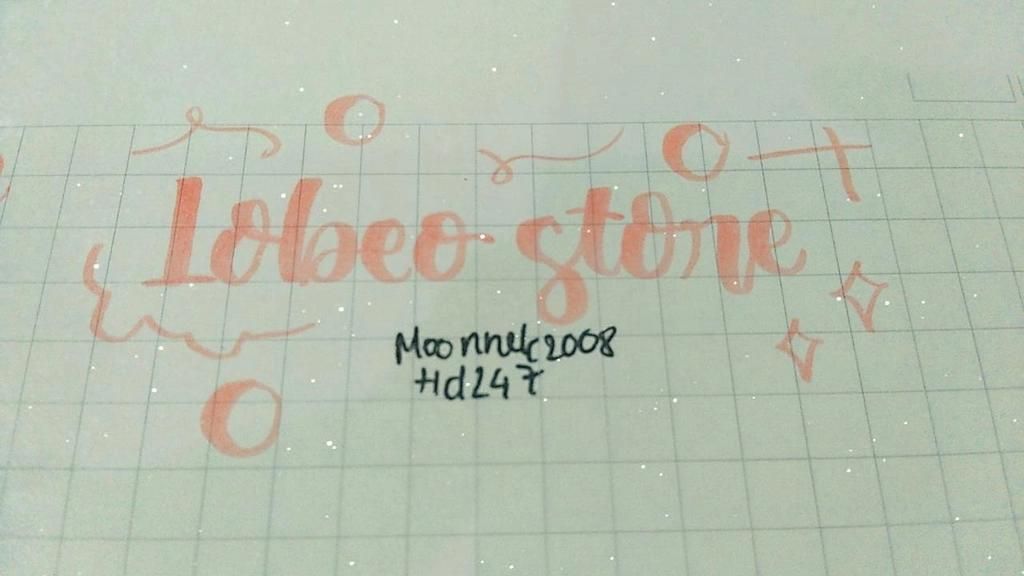 Lobeo store
Moonnek2008
Hd247